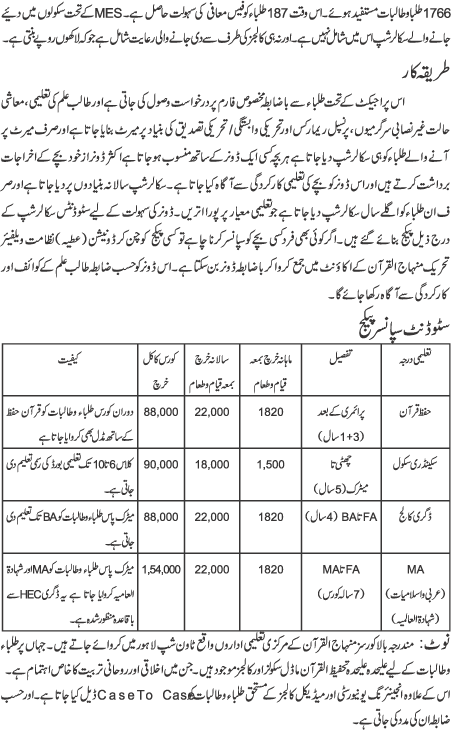 1766 طلبا و طالبات مستفید ہوئے۔ اس وقت 187 طلباء کو فیس معافی کی سہولت حاصل ہے۔ MES کے تحت سکولوں میں دیئے
جانے والے سکالرشپ اس میں شامل نہیں ہے۔ اور نہ ہی کالجز کی طرف سے دی جانے والی رعایت شامل ہے جو کہ لاکھوں روپے بنتی ہے۔
طریقہ کار
اس پراجیکٹ کے تحت طلباء سے باضابطہ مخصوص فارم پر درخواست وصول کی جاتی ہے اور طالب علم کی تعلیمی، معاشی
حالت غیر نصابی سرگرمیوں، پرنسپل ریمارکس اور تحریکی وابستگی / تحریکی تصدیق کی بنیاد پر میرٹ بنایا جاتا ہے اور صرف میرٹ پر
آنے والے طلباء کو ہی سکالرشپ دیا جاتا ہے ہر بچہ کسی ایک ڈونر کے ساتھ منسوب ہو جاتا ہے اکثر ڈونرز از خود بچے کے اخراجات
برداشت کرتے ہیں اور اس ڈونر کو بچے کی تعلیمی کارکردگی سے آگاہ کیا جاتا ہے۔ سکالرشپ سالانہ بنیادوں پر دیا جاتا ہے اور صر
ف ان طلباء کو اگلے سال سکالرشپ دیا جاتا ہے جو تعلیمی معیار پر پورا اتریں۔ ڈونر کی سہولت کے لیے سٹوڈنٹس سکالرشپ کے
درج ذیل پیکج بنائے گئے ہیں۔ اگر کوئی بھی فرد کسی بچے کو سپانسر کرنا چاہے تو کسی پیکج کو چن کر ڈونیشن (عطیہ) نظامت ویلفیئر
تحریک منہاج القرآن کے اکاؤنٹ میں جمع کروا کر باضابطہ ڈونر بن سکتا ہے۔ اس ڈونر کو حسب ضابطہ طالب علم کے کوائف اور
کارکردگی سے آگاہ رکھا جائے گا۔
سٹوڈنٹ سپانسر پیکج
تعلیمی درجہ تفصیل ماہانہ خرچ بمعہ قیام و طعام سالانہ خرچ بمعہ قیام و طعام کورس کا کل خرچ کیفیت
حفظ قرآن پرائمری کے بعد (1+3 سال) 1820 22,000 88,000 دوران کورس طلباء و طالبات کو قرآن حفظ کے ساتھ مڈل بھی کروایا جاتا ہے
سکینڈری سکول چھٹی تا میٹرک (5 سال) 1,500 18,000 90,000 کلاس 6 تا 10 تک تعلیمی بورڈ کی رسمی تعلیم دی جاتی ہے۔
ڈگری کالج FA تا BA (4 سال) 1820 22,000 88,000 میٹرک پاس طلباء و طالبات کو BA تک تعلیم دی جاتی ہے۔
MA (عربی و اسلامیات) (شہادۃ العالمیہ) FA تا MA (7 سالہ کورس) 1820 22,000 1,54,000 میٹرک پاس طلباء و طالبات کو MA اور شہادۃ العامیہ کروایا جاتا ہے یہ ڈگری HEC سے باقاعدہ منظور شدہ ہے۔
نوٹ: مندرجہ بالا کورسز منہاج القرآن کے مرکزی تعلیمی اداروں واقع ٹاؤن شپ لاہور میں کروائے جاتے ہیں۔ جہاں پر طلباء
و طالبات کے لیے علیحدہ علیحدہ تحفیظ القرآن ماڈل سکولز اور کالجز موجود ہیں۔ جن میں اخلاقی اور روحانی تربیت کا خاص اہتمام ہے۔
اس کے علاوہ انجینئرنگ یونیورسٹی اور میڈیکل کالجز کے مستحق طلباء و طالبات کو Case To Case ڈیل کیا جاتا ہے۔ اور حسب
ضابطہ ان کی مدد کی جاتی ہے۔